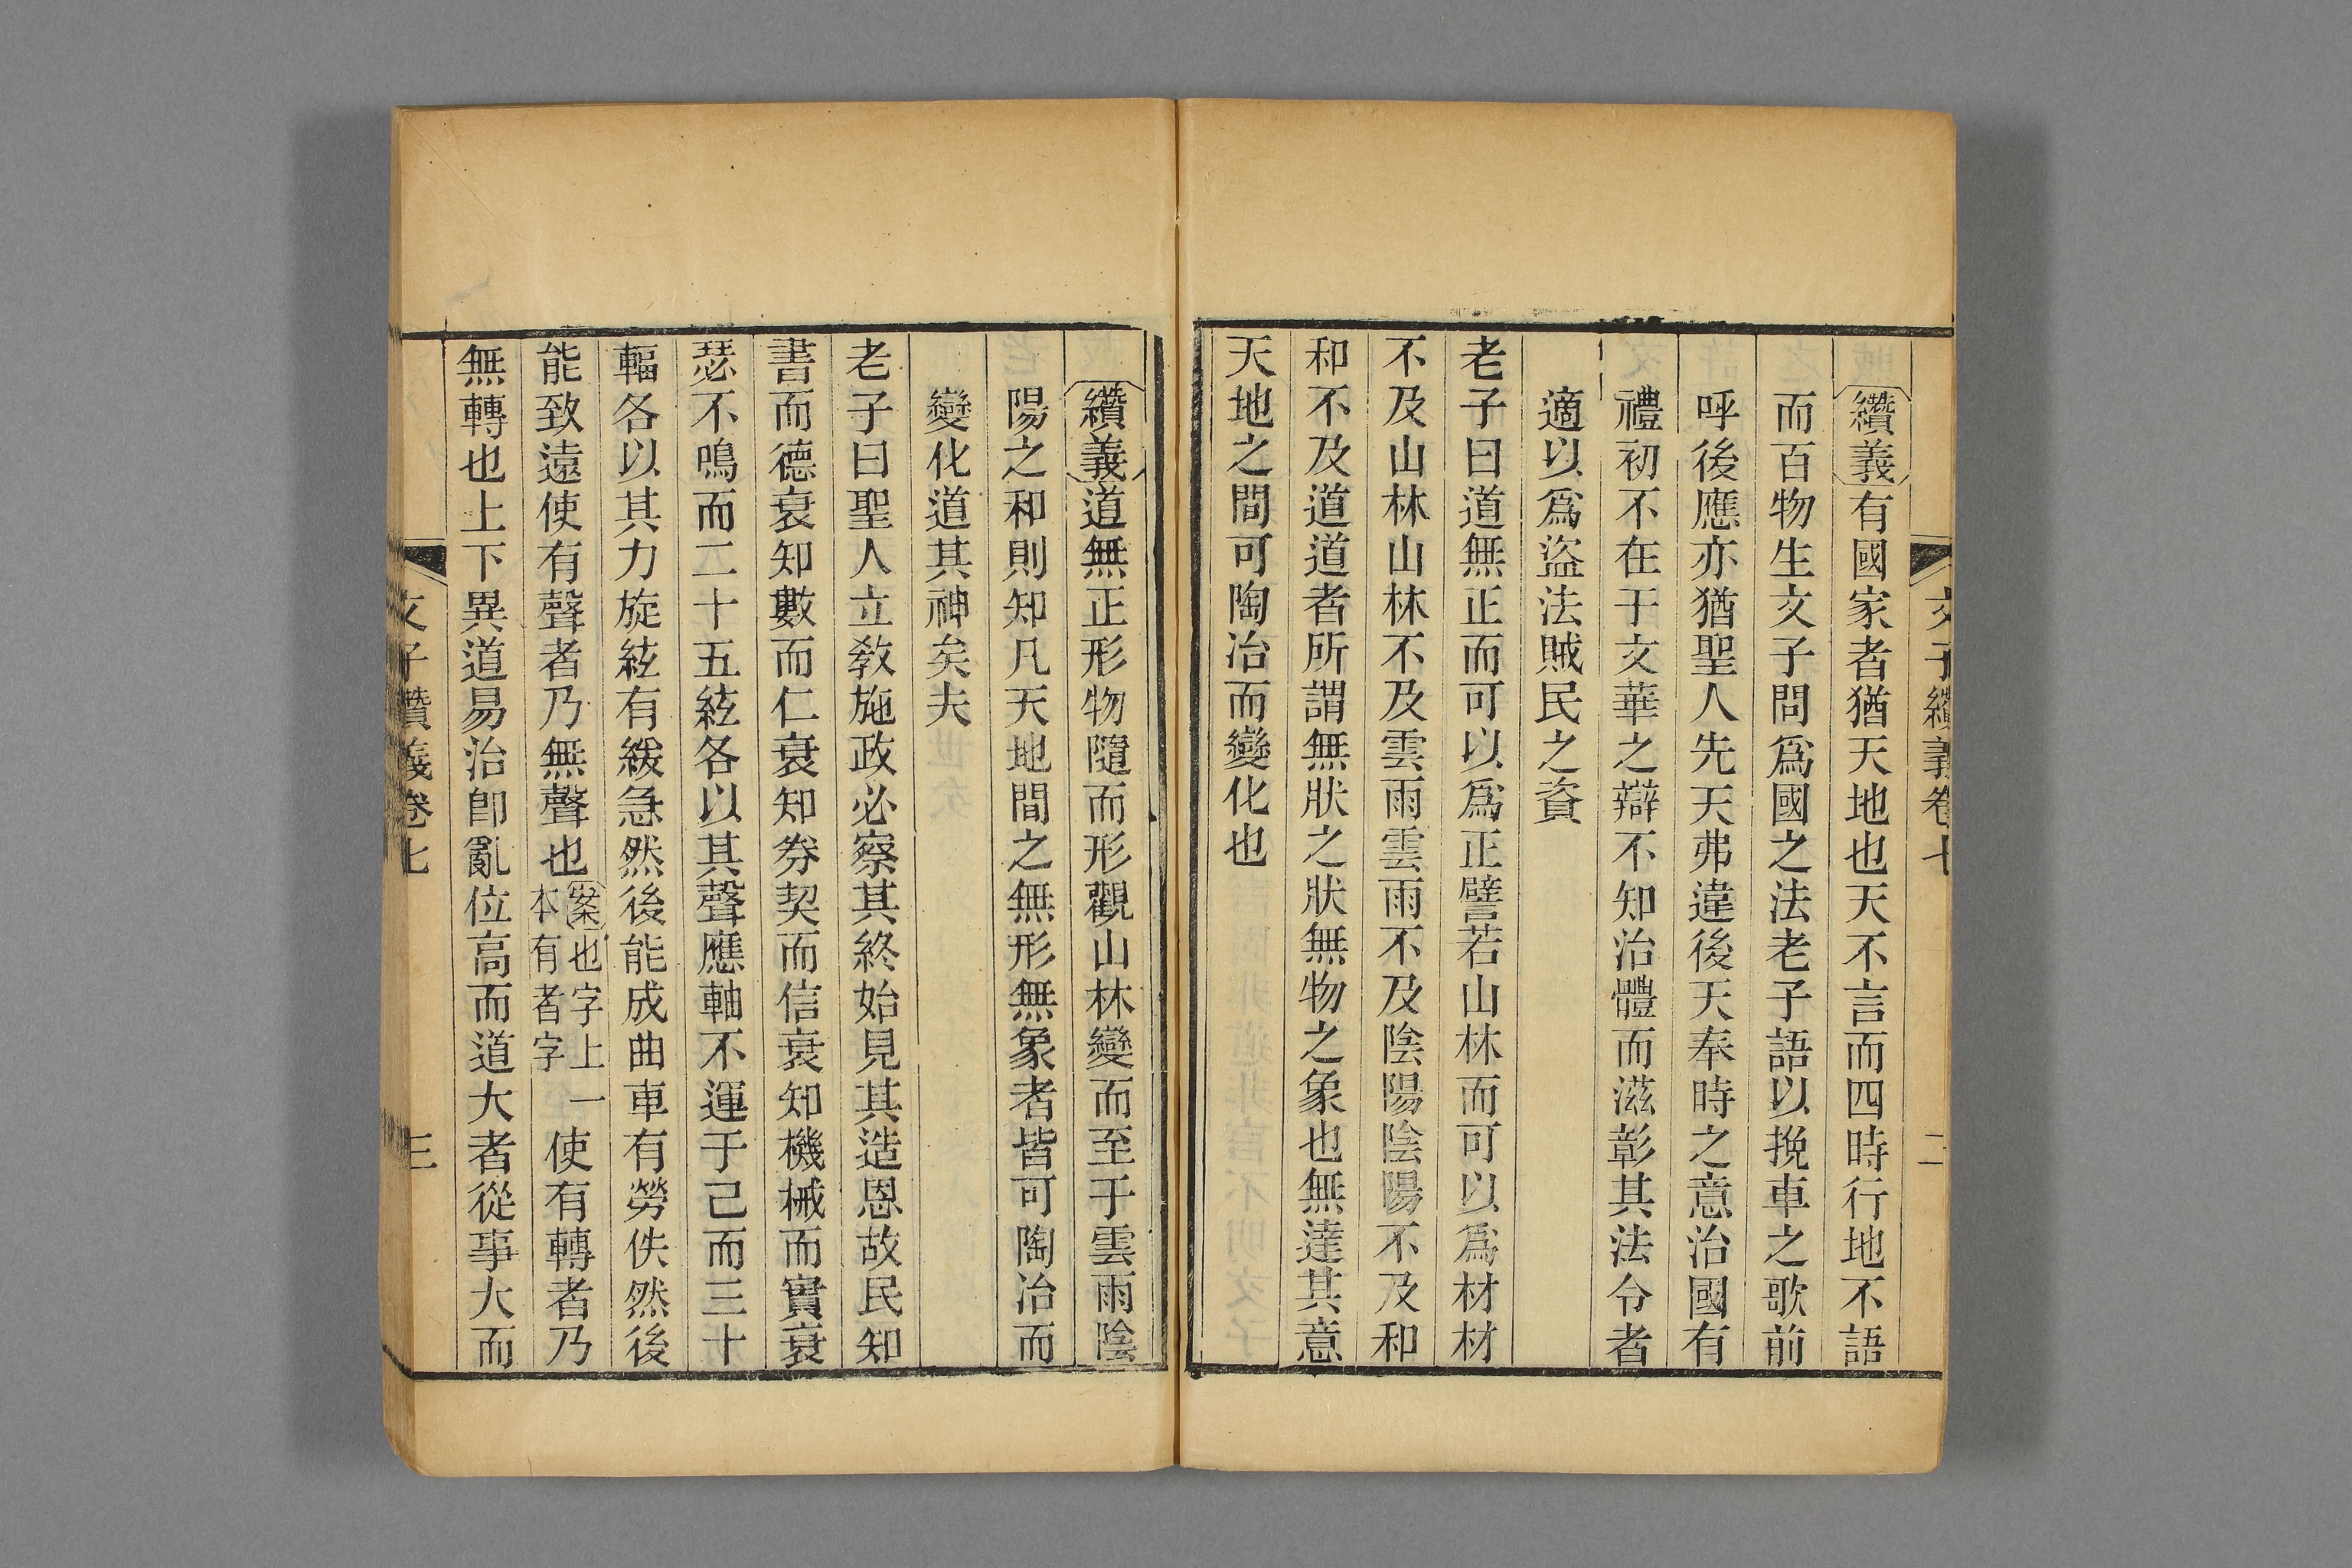 文子纘義卷七
二
纘義有國家者猶天地也天不言而四時行地不語
而百物生文子問爲國之法老子語以挽車之歌前
呼後應亦猶聖人先天弗違後天奉時之意治國有
禮初不在于文華之辯不知治體而滋彰其法令者
適以爲盜法賊民之資
老子曰道無正而可以爲正譬若山林而可以爲材材
不及山林山林不及雲雨雲雨不及陰陽陰陽不及和
和不及道道者所謂無狀之狀無物之象也無達其意
天地之間可陶冶而變化也
纘義道無正形物隨而形觀山林變而至于雲雨陰
陽之和則知凡天地間之無形無象者皆可陶冶而
變化道其神矣夫
老子曰聖人立敎施政必察其終始見其造恩故民知
書而德衰知數而仁衰知券契而信衰知機械而實衰
瑟不鳴而二十五絃各以其聲應軸不運于己而三十
輻各以其力旋絃有緩急然後能成曲車有勞佚然後
能致遠使有聲者乃無聲也案也字上一本有者字使有轉者乃
無轉也上下異道易治卽亂位高而道大者從事大而
文子纘義卷七
三